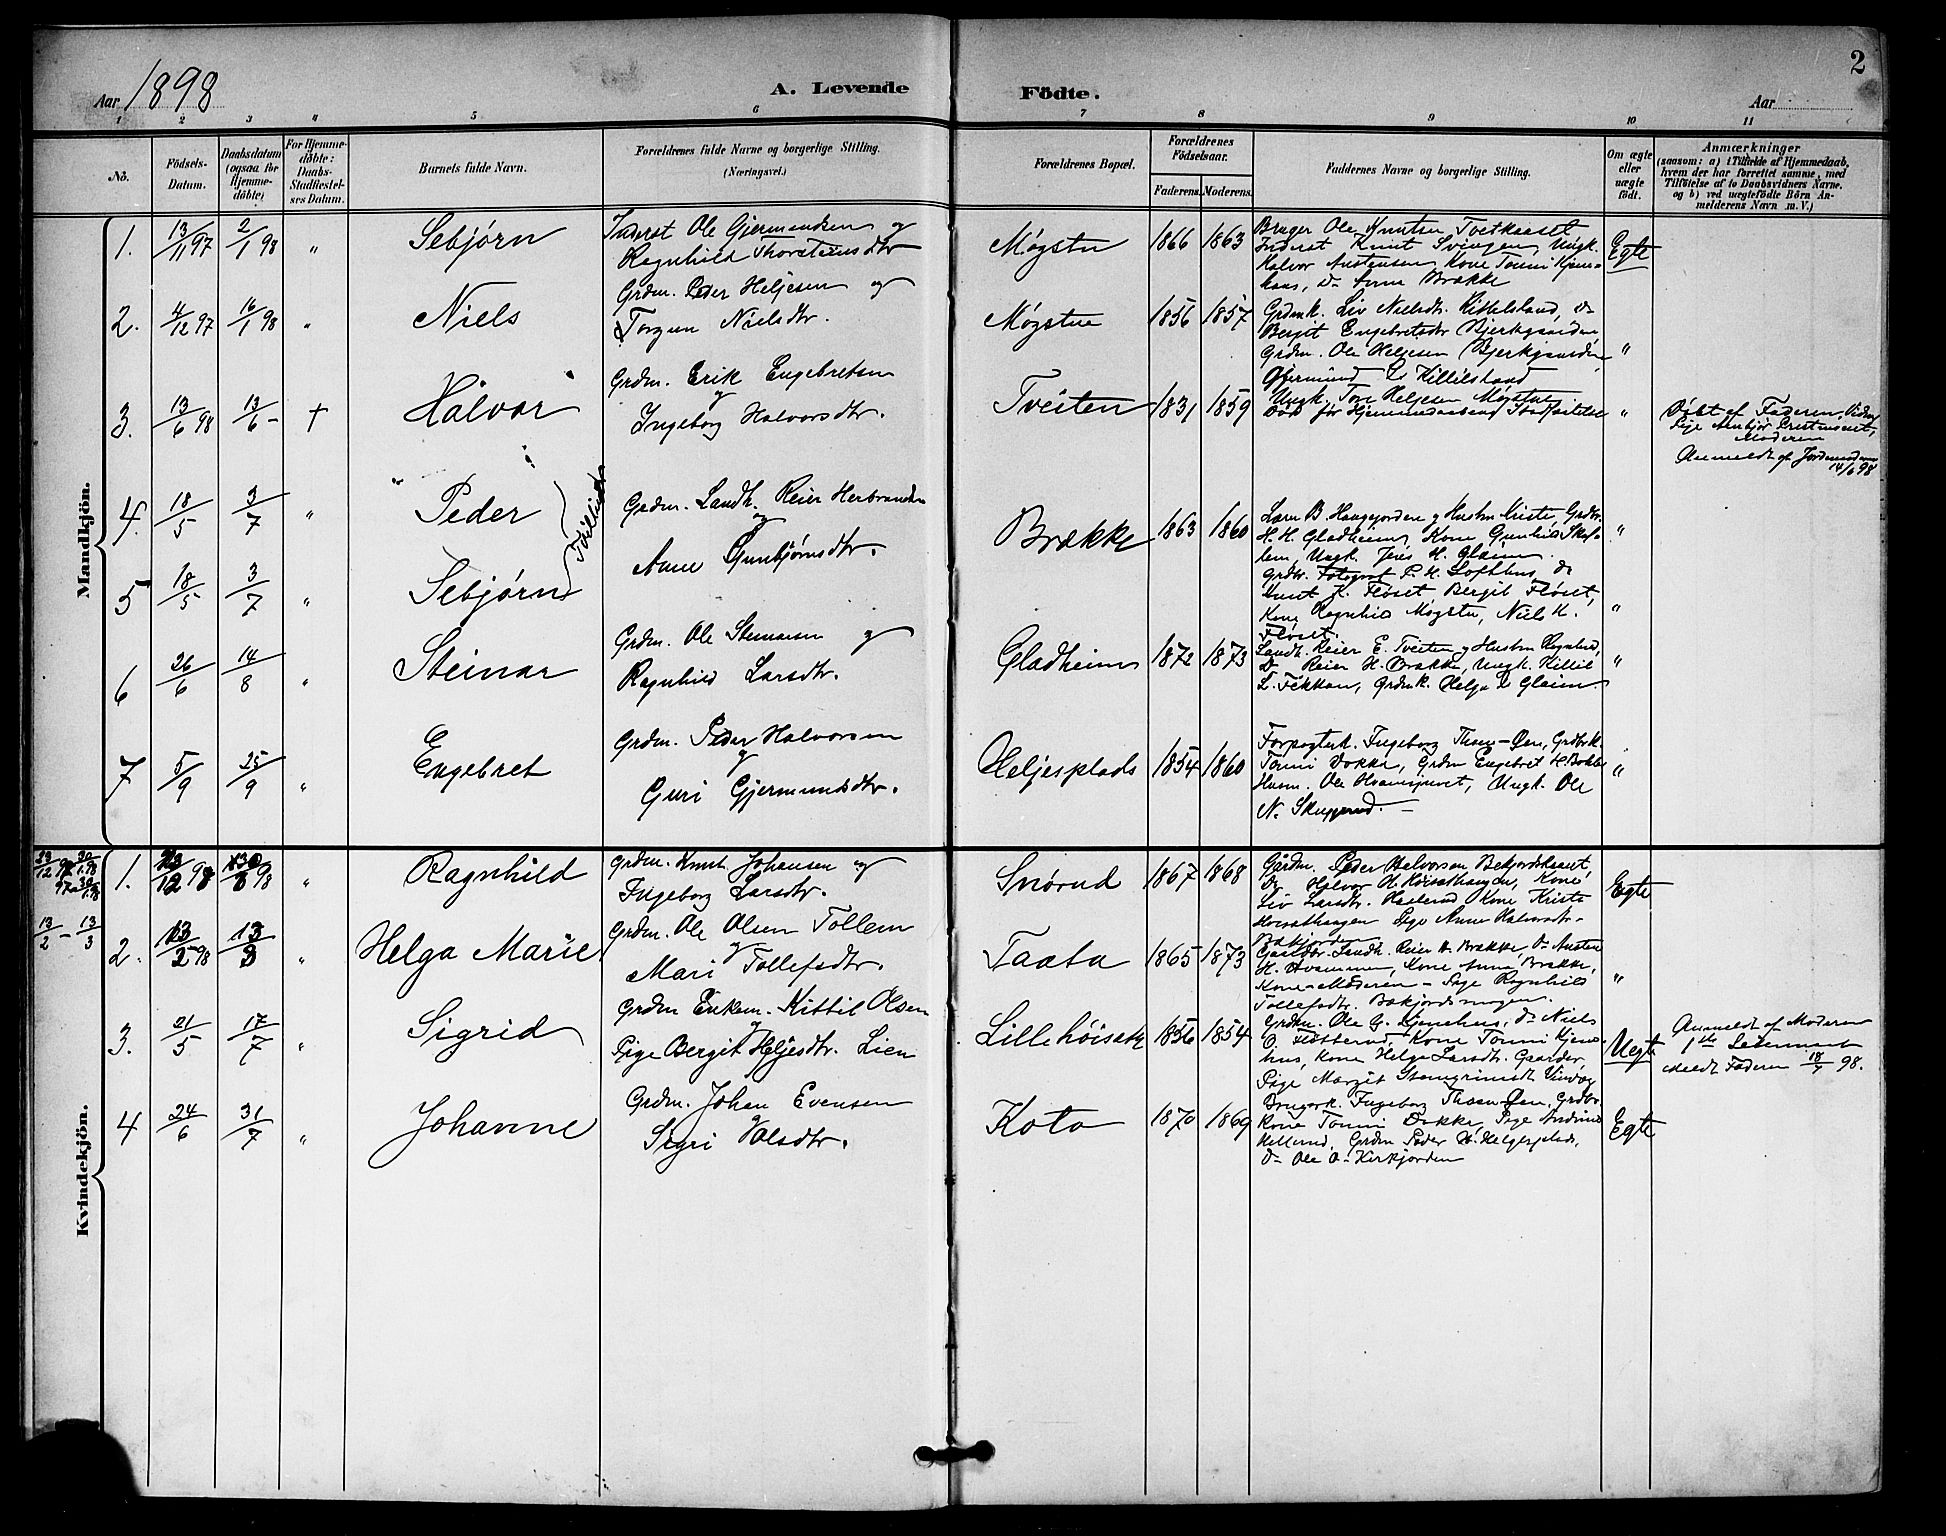 2
Aar 1898
A. Levende
Födte.
Aar
1 2 3 4 5 6 7 8 9 10 11
No.
Födsels-Datum.
Daabsdatum (ogsaa for Hjemmedöbte)
For Hjemmedöbte: Daabs-Stadfæstelses Datum.
Barnets fulde Navn.
Forældrenes fulde Navne og borgerlige Stilling.
(Næringsvei.)
Forældrenes Bopæl.
Forældrenes Födselsaar.
Faderens. Moderens.
Faddernes Navne og borgerlige Stilling.
Om ægte eller uægte födt.
Anmærkninger
(saasom: a) i Tilfælde af Hjemmedaab, hvem der har forrettet samme, med Tilföielse af to Daabsvidners Navne, og b) ved uægtefödte Börn Anmelderens Navn m. V.)
Mandkjön.
1. 13/11 97 2/1 98 " Sebjørn
Inderst Ole Gjermundsen og
Ragnhild Thorsteinsdtr
Møgster 1866 1863
Bruger Ole Knutsen Tveitkaaset
Inderst Knut Svingen, Ungk.
Halvor Austensen, Kone Tonni Kjem-
hus, do Anne Brække
Egte
2. 4/12 97 16/1 98 " Niels
Grdm. Peder Heljesen og
Torgun Nielsdtr.
Møgstue 1856 1857
Grdmk. Liv Nielsdtr. Kittelsland, do
Bergit Engebretsdtr Bjerkgaarden
Grdm. Ole Heljesen Bjerkgaarden
Gjermund L. Killilsland
Ungk. Tore Heljesen Møgstue
"
3. 13/6 98 13/6 - † Halvor
Grdm. Erik Engebretsen
og
Ingeborg Halvorsdtr.
Tveiten 1831 1859
Død før Hjemmedaabens Stadfæstelse
"
Døbt af Faderen, Vidner
Pige
Moderen
Anmeldt af Jordmoderen
14/6 98
4. 18/5 3/7 " Peder
Tvillinder
Grdm. Landh. Reier Herbrandsen
og
Anne Gunbjørnsdtr.
Brække 1863 1860
Lærer B. Haugejorden og Hustru Kristi, Grdbr.
H. H. Gladheim, Kone Gunhild Skaf-
lem, Ungk. Jens H. Glaim.
"
5 18/5 3/7 " Sebjørn
Grdbr. Fotograf P. H. Lofthus, do
Knut K. Fløset, Bergit Fløset,
Kone Ragnhild Møgster, Niels K.
Fløset.
"
6 26/6 14/8 " Steinar
Grdm. Ole Steinarsen og
Ragnhild Larsdtr.
Gladheim 1872 1873
Landh. Reier E. Tveiten og Hustru Ragnhild,
Do Reier H. Brække, Ungk. Killil
L. Fekkan, Grdmk. Helga L Glaim.
"
7 5/9 25/9 " Engebret
Grdm. Peder Halvorsen
og
Guri Gjermundsdtr.
Heljesplads 1854 1860
Forpagterk. Ingeborg Thoen-Øen, Grdbrk.
Tonni Dokke, Grdm Engebret H Bakke
Husm. Ole Hvamsjuvet, Ungk. Ole
N. Skuggerud. -
"
Kvindekjön.
23/12 97 30/1.98
97 30/1.98
1. 23/12 98 30/8 98 " Ragnhild
Grdm. Knut Johansen og
Ingeborg Larsdtr.
Snørud 1867 1868
Gårdm. Peder Halvorsen
Do Halvor H. Høisæthaugen, Kone
Liv Larsdtr. Haslerud Kone Kristi
Høisæthaugen Pige Anne Halvorsdtr-
Bakjorden
Egte
13/2 - 13/3
2. 13/2 98 13/3 " Helga Marie
Grdm. Ole Olsen Tollem
og
Mari Tollefsdtr.
Taata 1865 1873
Gaardbr. Landh. Reier H. Brække, do Austen
H. Hvammen, Kone Anne Brække,
Kone - Moderen - Pige Ragnhild
Tollefsdtr. Bakjordsmogen.
"
3. 21/5 17/7 " Sigrid
Grdm Enkem. Kittil Olsen
og
Pige Bergit Heljesdtr. Lien
Lillehöisæth 1856 1854
Grdm. Ole G. Kjemhus, do Niels
O. Flotterud, Kone Tonni Kjem-
hus, Kone Helga Larsdtr. Gaarder,
Pige Margit Steingrimsdt Vindeg
Uegte
Anmeldt af Moderen
1ste Leiermaal
Meldt Faderen 18/7 98.
4 24/6 31/7 " Johanne
Grdm. Johan Evensen
Sigri Olsdtr.
Koto 1870 1869
Brugerk. Ingeborg Thoen Øen, Grdbr.
Kone Tonni Dokke, Pige
Kellerud, Grdm Peder H. Helgesplads,
do Ole O. Kirkjorden
Egte